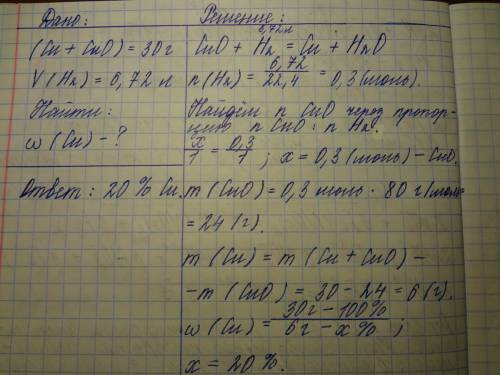 Дано:
(Cu + CuO) = 30 г
V(H₂) = 6,72 л
Найти:
ω(Cu) - ?
Ответ: 20% Cu.
Решение:
6,72 л
CuO + H₂ = Cu + H₂O
n(H₂) = 6,72/22,4 = 0,3 (моль).
Найдём n CuO через пропор-
цию n CuO : n H₂.
x/1 = 0,3/1 ; x = 0,3 (моль) - CuO.
m(CuO) = 0,3 моль · 80 г/моль=
= 24 (г).
m(Cu) = m(Cu + CuO) -
- m(CuO) = 30 - 24 = 6 (г).
ω(Cu) = 30г - 100% / 6г - x% ;
x = 20%.